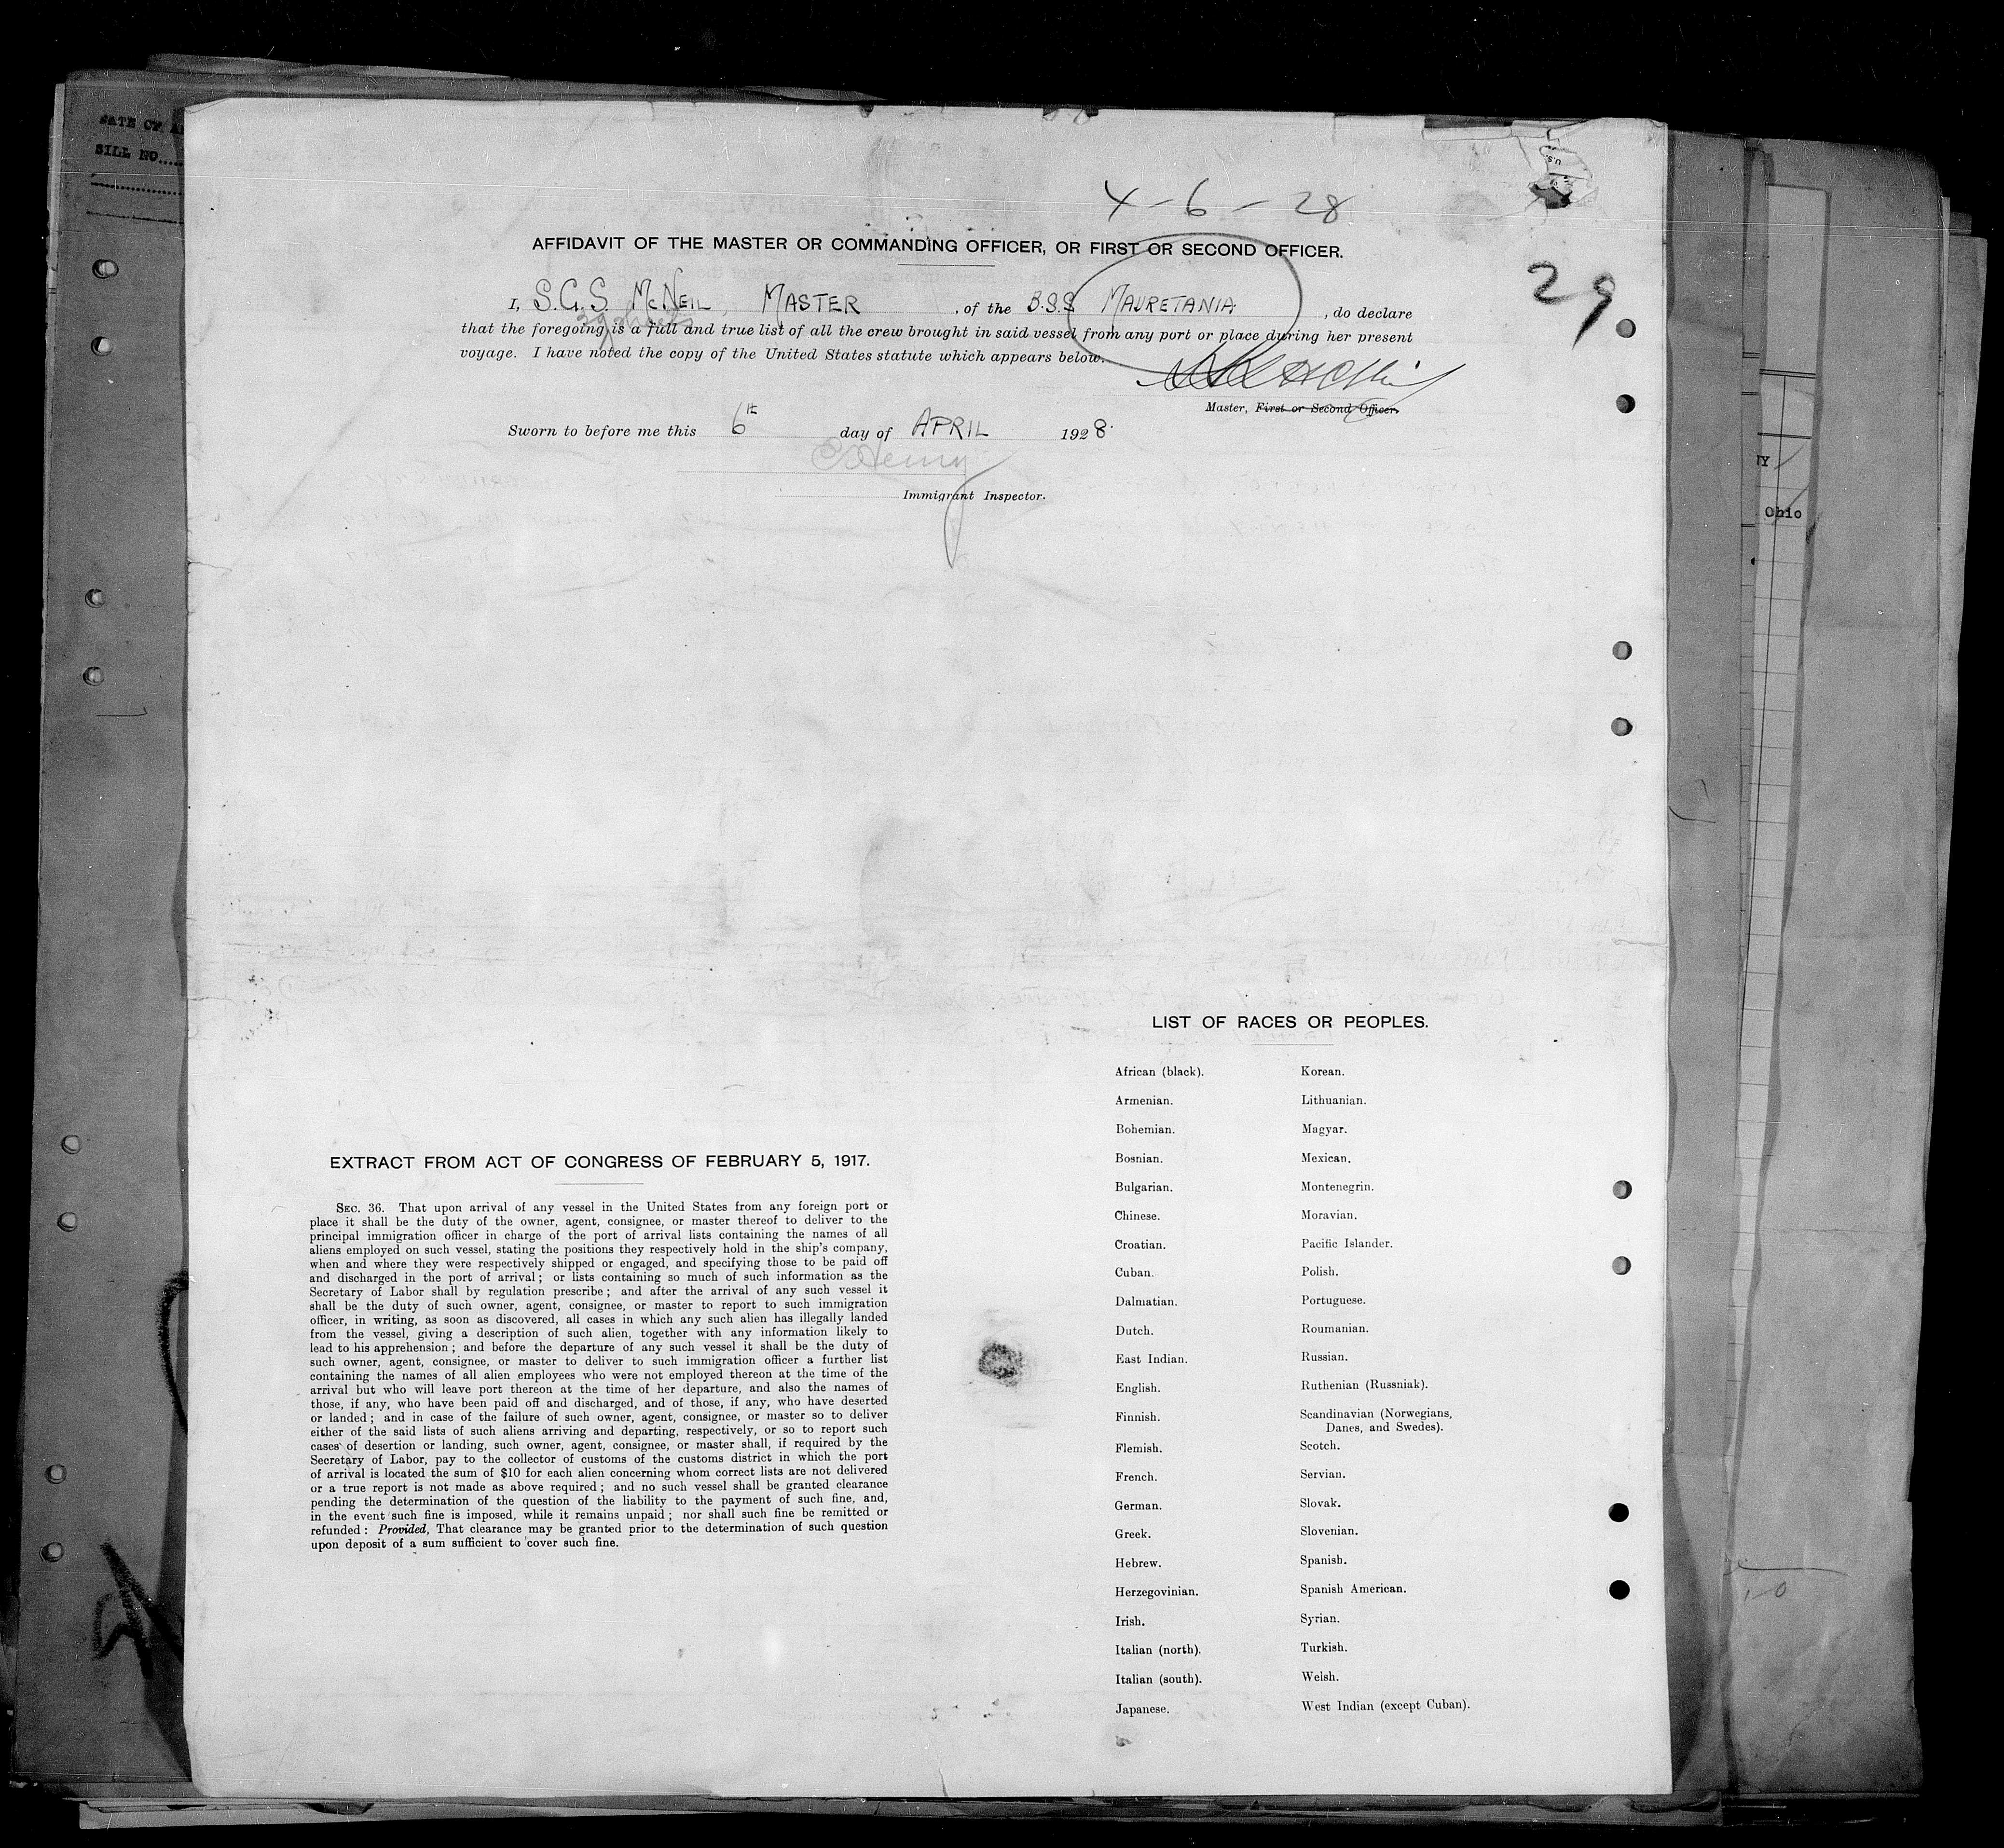 DATE OF
BILL NO.....
4-6-28
29
AFFIDAVIT OF THE MASTER OR COMMANDING OFFICER, OR FIRST OR SECOND OFFICER.
I, S.G.S. McNEIL MASTER, of the B.S.S. MAURETANIA, do declare
29 sheets
that the foregoing is a full and true list of all the crew brought in said vessel from any port or place during her present
voyage. I have noted the copy of the United States statute which appears below.
Master, First or Second Officer.
Sworn to before me this 6th day of APRIL 1928.
Immigrant Inspector.
Ohio
LIST OF RACES OR PEOPLES.
African (black).
Armenian.
Bohemian.
Bosnian.
Bulgarian.
Chinese.
Croatian.
Cuban.
Dalmatian.
Dutch.
East Indian.
English.
Finnish.
Flemish.
French.
German.
Greek.
Hebrew.
Herzegovinian.
Irish.
Italian (north).
Italian (south).
Japanese.
Korean.
Lithuanian.
Magyar.
Mexican.
Montenegrin.
Moravian.
Pacific Islander.
Polish.
Portuguese.
Roumanian.
Russian.
Ruthenian (Russniak).
Scandinavian (Norwegians,
Danes, and Swedes).
Scotch.
Servian.
Slovak.
Slovenian.
Spanish.
Spanish American.
Syrian.
Turkish.
Welsh.
West Indian (except Cuban).
EXTRACT FROM ACT OF CONGRESS OF FEBRUARY 5, 1917.
SEC. 36. That upon arrival of any vessel in the United States from any foreign port or
place it shall be the duty of the owner, agent, consignee, or master thereof to deliver to the
principal immigration officer in charge of the port of arrival lists containing the names of all
aliens employed on such vessel, stating the positions they respectively hold in the ship's company,
when and where they were respectively shipped or engaged, and specifying those to be paid off
and discharged in the port of arrival; or lists containing so much of such information as the
Secretary of Labor shall by regulation prescribe; and after the arrival of any such vessel it
shall be the duty of such owner, agent, consignee, or master to report to such immigration
officer, in writing, as soon as discovered, all cases in which any such alien has illegally landed
from the vessel, giving a description of such alien, together with any information likely to
lead to his apprehension; and before the departure of any such vessel it shall be the duty of
such owner, agent, consignee, or master to deliver to such immigration officer a further list
containing the names of all alien employees who were not employed thereon at the time of the
arrival but who will leave port thereon at the time of her departure, and also the names of
those, if any, who have been paid off and discharged, and of those, if any, who have deserted
or landed; and in case of the failure of such owner, agent, consignee, or master so to deliver
either of the said lists of such aliens arriving and departing, respectively, or so to report such
cases of desertion or landing, such owner, agent, consignee, or master shall, if required by the
Secretary of Labor, pay to the collector of customs of the customs district in which the port
of arrival is located the sum of $10 for each alien concerning whom correct lists are not delivered
or a true report is not made as above required; and no such vessel shall be granted clearance
pending the determination of the question of the liability to the payment of such fine, and,
in the event such fine is imposed, while it remains unpaid; nor shall such fine be remitted or
refunded: Provided, That clearance may be granted prior to the determination of such question
upon deposit of a sum sufficient to cover such fine.